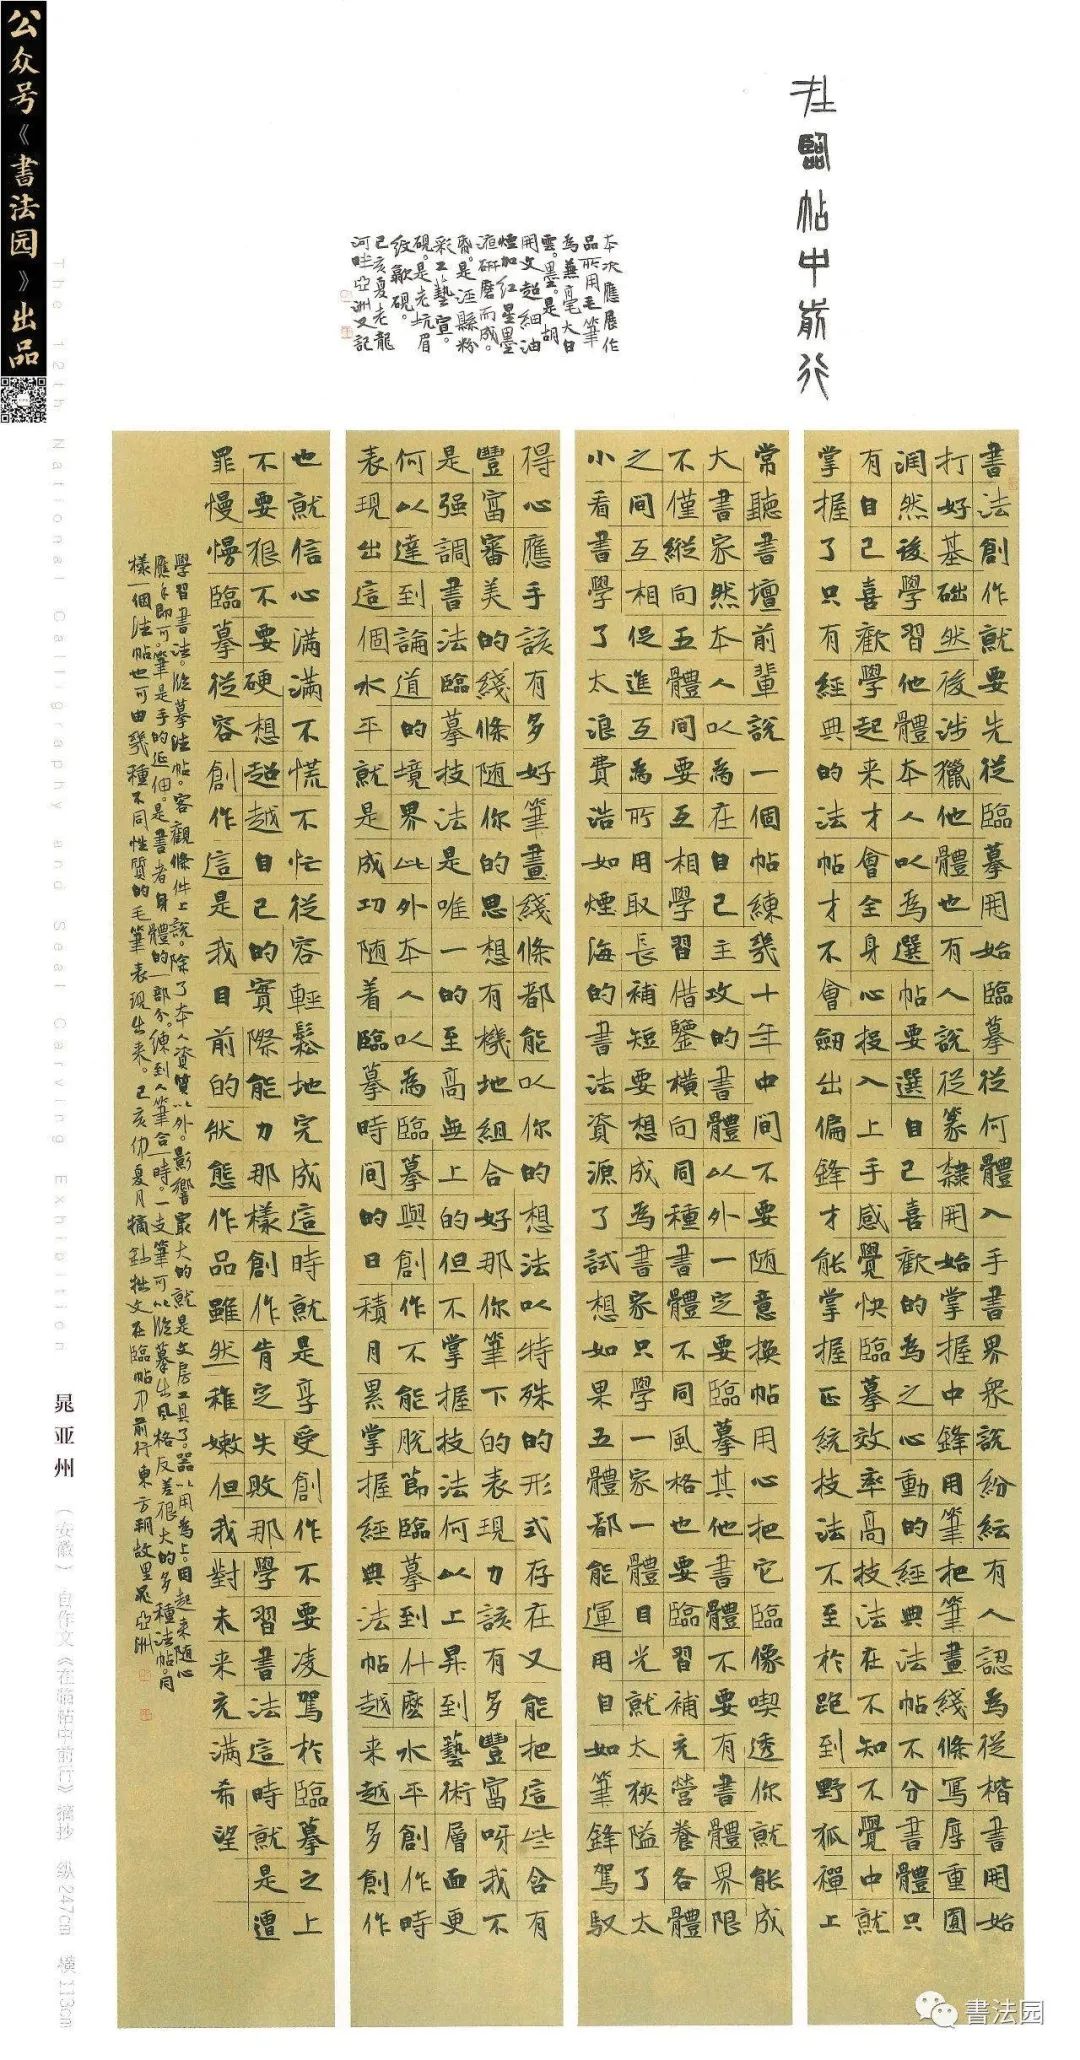 公众号《書法园》出品
在臨帖中前行
本次應展作
品所用毛筆
為兼毫大白
雲。墨。是胡
開文超細油
煙加红星墨
液研磨而成。
紙。是涇縣粉
彩工藝宣。
硯。是老坑眉
紋歙硯。
己亥夏老龍
河畔亞洲又記
書法創作就要先從臨摹開始臨摹從何體入手書界衆説紛紜有人認為從楷書開始
打好基础然後涉獵他體也有人説從篆隸開始掌握中鋒用筆把筆畫綫條寫厚重圓
潤然後學習他體本人以為選帖要選自己喜歡的為之心動的經典法帖不分書體只
有自己喜歡學起来才會全身心投入上手感覺快臨摹效率高技法在不知不覺中就
掌握了只有經典的法帖才不會劍出偏鋒才能掌握正統技法不至於跑到野狐禪上
常聽書壇前輩説一個帖練幾十年中間不要随意換帖用心把它臨像喫透你就能成
大書家然本人以為在自己主攻的書體以外一定要臨摹其他書體不要有書體界限
不僅縱向五體間要互相學習借鑒橫向同種書體不同風格也要臨習補充營養各體
之間互相促進互為所用取長補短要想成為書家只學一家一體目光就太狹隘了太
小看書學了太浪費浩如煙海的書法資源了試想如果五體都能運用自如筆鋒駕馭
得心應手該有多好筆畫綫條都能以你的想法以特殊的形式存在又能把這些含有
豐富審美的綫條随你的思想有機地組合好那你筆下的表現力該有多豐富呀我不
是强調書法臨摹技法是唯一的至高無上的但不掌握技法何以上昇到藝術層面更
何以達到論道的境界此外本人以為臨摹與創作不能脱節臨摹到什麽水平創作時
表現出這個水平就是成功随着臨摹時間的日積月累掌握經典法帖越来越多創作
也就信心滿滿不慌不忙從容輕鬆地完成這時就是享受創作不要凌駕於臨摹之上
不要狠不要硬想超越自己的實際能力那樣創作肯定失敗那學習書法這時就是遭
罪慢慢臨摹從容創作這是我目前的狀態作品雖然稚嫩但我對未来充滿希望
學習書法。臨摹法帖。客觀條件上說。除了本人資質以外。影響最大的就是文房工具了。器以用為上。用起来随心
應手即可。筆是手的延伸。是書者身體的一部分。練到人筆合一時。一支筆可以臨摹出風格反差很大的多種法帖。同
樣一個法帖也可由幾種不同性質的毛筆表現出来。己亥仲夏月摘鈔拙文在臨帖中前行東方朔故里晁亞洲
The 12th National Calligraphy and Seal Carving Exhibition
晁亚州 （安徽） 自作文《在临帖中前行》摘抄 纵247cm 横113cm
書法园